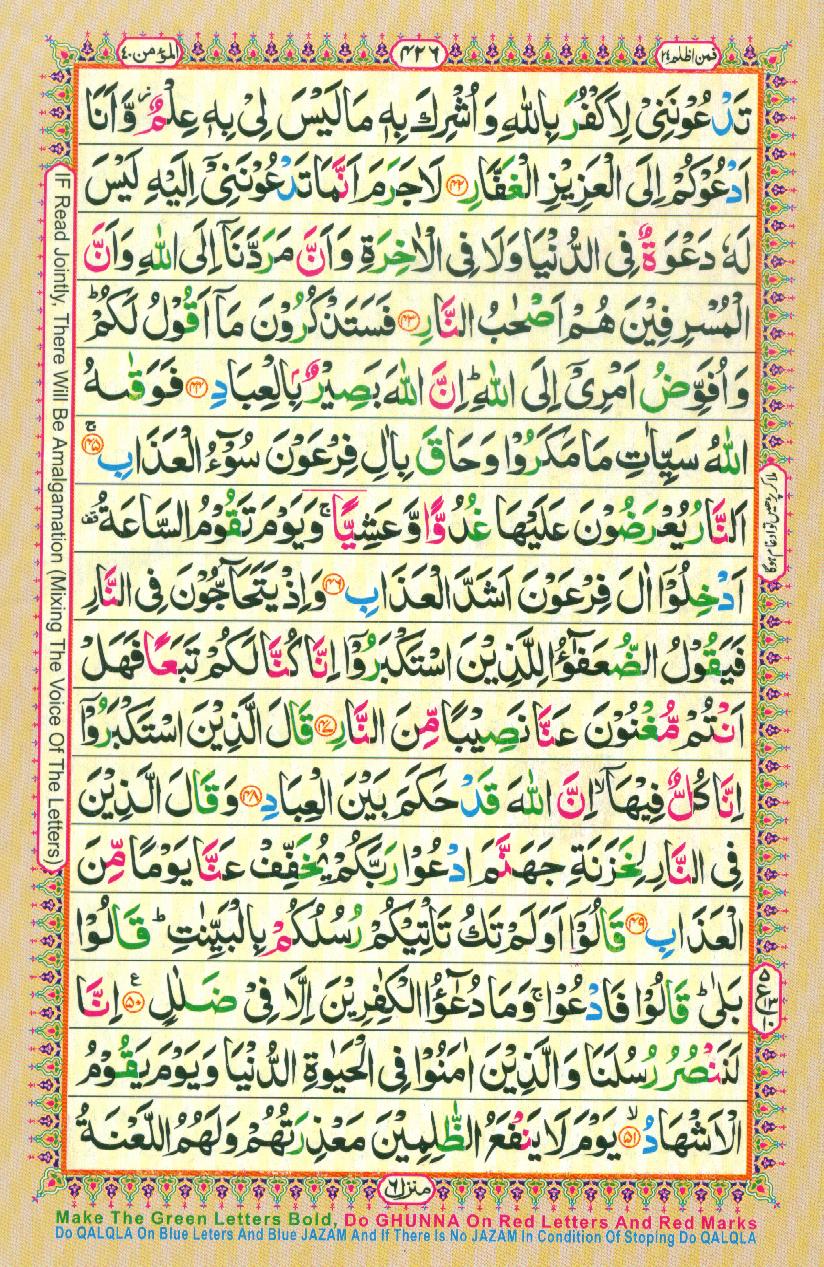 المؤمن ٤٠
٤٢٦
فمن اظلم ٢٤
تَدْعُوْنَنِیْ لِاَكْفُرَ بِاللّٰهِ وَ اُشْرِكَ بِهٖ مَا لَیْسَ لِیْ بِهٖ عِلْمٌ٘ وَّ اَنَا
اَدْعُوْكُمْ اِلَى الْعَزِیْزِ الْغَفَّارِ ﴿۴۲﴾ لَا جَرَمَ اَنَّمَا تَدْعُوْنَنِیْۤ اِلَیْهِ لَیْسَ
لَهٗ دَعْوَةٌ فِی الدُّنْیَا وَ لَا فِی الْاٰخِرَةِ وَ اَنَّ مَرَدَّنَاۤ اِلَى اللّٰهِ وَ اَنَّ
الْمُسْرِفِیْنَ هُمْ اَصْحٰبُ النَّارِ ﴿۴۳﴾ فَسَتَذْكُرُوْنَ مَاۤ اَقُوْلُ لَكُمْؕ
وَ اُفَوِّضُ اَمْرِیْۤ اِلَى اللّٰهِؕ اِنَّ اللّٰهَ بَصِیْرٌۢ بِالْعِبَادِ ﴿۴۴﴾ فَوَقٰىهُ
اللّٰهُ سَیِّاٰتِ مَا مَكَرُوْا وَ حَاقَ بِاٰلِ فِرْعَوْنَ سُوْٓءُ الْعَذَابِ ﴿۴۵﴾
اَلنَّارُ یُعْرَضُوْنَ عَلَیْهَا غُدُوًّا وَّ عَشِیًّاۚ وَ یَوْمَ تَقُوْمُ السَّاعَةُ
اَدْخِلُوْۤا اٰلَ فِرْعَوْنَ اَشَدَّ الْعَذَابِ ﴿۴۶﴾ وَ اِذْ یَتَحَآجُّوْنَ فِی النَّارِ
فَیَقُوْلُ الضُّعَفٰٓؤُا لِلَّذِیْنَ اسْتَكْبَرُوْۤا اِنَّا كُنَّا لَكُمْ تَبَعًا فَهَلْ
اَنْتُمْ مُّغْنُوْنَ عَنَّا نَصِیْبًا مِّنَ النَّارِ ﴿۴۷﴾ قَالَ الَّذِیْنَ اسْتَكْبَرُوْۤا
اِنَّا كُلٌّ فِیْهَاۤۙ اِنَّ اللّٰهَ قَدْ حَكَمَ بَیْنَ الْعِبَادِ ﴿۴۸﴾ وَ قَالَ الَّذِیْنَ
فِی النَّارِ لِخَزَنَةِ جَهَنَّمَ ادْعُوْا رَبَّكُمْ یُخَفِّفْ عَنَّا یَوْمًا مِّنَ
الْعَذَابِ ﴿۴۹﴾ قَالُوْۤا اَوَ لَمْ تَكُ تَاْتِیْكُمْ رُسُلُكُمْ بِالْبَیِّنٰتِؕ قَالُوْا
بَلٰىؕ قَالُوْا فَادْعُوْاۚ وَ مَا دُعٰٓؤُا الْكٰفِرِیْنَ اِلَّا فِیْ ضَلٰلٍ ﴿۵۰﴾ اِنَّا
لَنَنْصُرُ رُسُلَنَا وَ الَّذِیْنَ اٰمَنُوْا فِی الْحَیٰوةِ الدُّنْیَا وَ یَوْمَ یَقُوْمُ
الْاَشْهَادُۙ ﴿۵۱﴾ یَوْمَ لَا یَنْفَعُ الظّٰلِمِیْنَ مَعْذِرَتُهُمْ وَ لَهُمُ اللَّعْنَةُ
IF Read Jointly, There Will Be Amalgamation (Mixing The Voice Of The Letters)
منزل ٦
Make The Green Letters Bold, Do GHUNNA On Red Letters And Red Marks
Do QALQLA On Blue Leters And Blue JAZAM And If There Is No JAZAM In Condition Of Stoping Do QALQLA